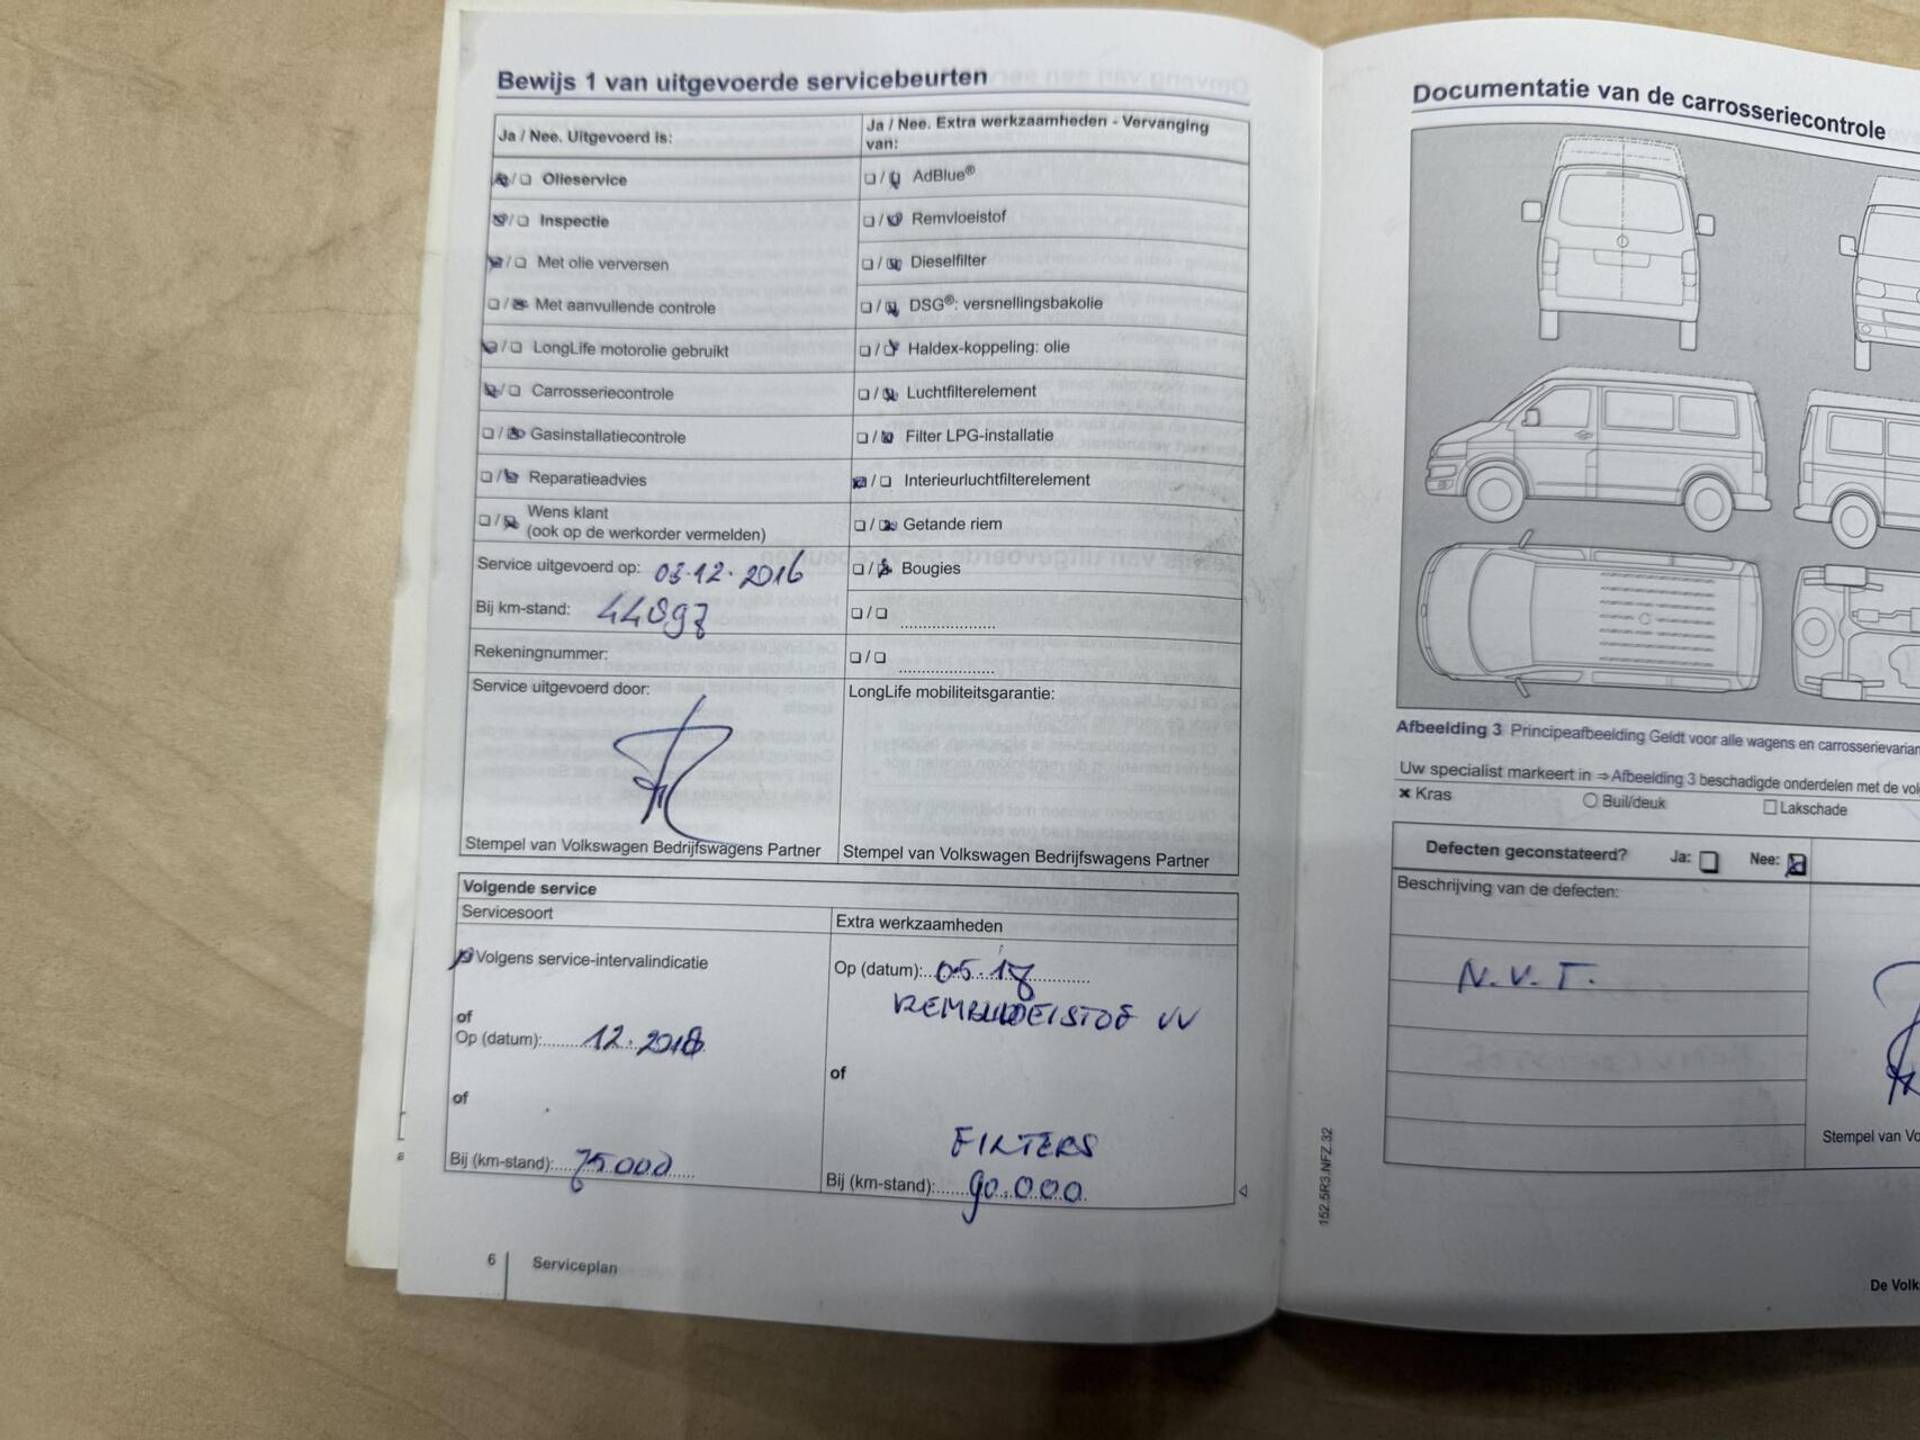 Bewijs 1 van uitgevoerde servicebeurten
Ja / Nee. Uitgevoerd is:
Olieservice
Inspectie
Met olie verversen
Met aanvullende controle
LongLife motorolie gebruikt
Carrosseriecontrole
Gasinstallatiecontrole
Reparatieadvies
Wens klant
(ook op de werkorder vermelden)
Service uitgevoerd op: 03-12-2016
Bij km-stand:
Rekeningnummer:
Service uitgevoerd door:
Stempel van Volkswagen Bedrijfswagens Partner
Ja / Nee. Extra werkzaamheden - Vervanging
van:
AdBlue®
Remvloeistof
Dieselfilter
DSG®: versnellingsbakolie
Haldex-koppeling: olie
Luchtfilterelement
Filter LPG-installatie
Interieurluchtfilterelement
Getande riem
Bougies
LongLife mobiliteitsgarantie:
Stempel van Volkswagen Bedrijfswagens Partner
Volgende service
Servicesoort
Volgens service-intervalindicatie
of
Op (datum): 12.2018
of
Bij (km-stand): 75000
Extra werkzaamheden
Op (datum): 05.18
REMVLOEISTOF VV
of
FILTERS
Bij (km-stand): 90.000
6 Serviceplan
Documentatie van de carrosseriecontrole
Afbeelding 3 Principeafbeelding Geldt voor alle wagens en carrosserievarian
Uw specialist markeert in ⇒ Afbeelding 3 beschadigde onderdelen met de vol
× Kras ○ Buil/deuk □ Lakschade
Defecten geconstateerd? Ja: Nee:
Beschrijving van de defecten:
N.V.T.
Stempel van Vo
152.5R3.NFZ.32
De Volk